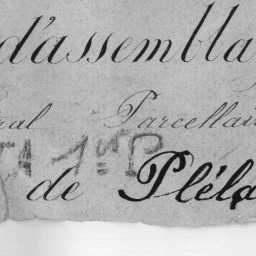 d'assembla
ral Parcellair
A 1er P
de Pléla